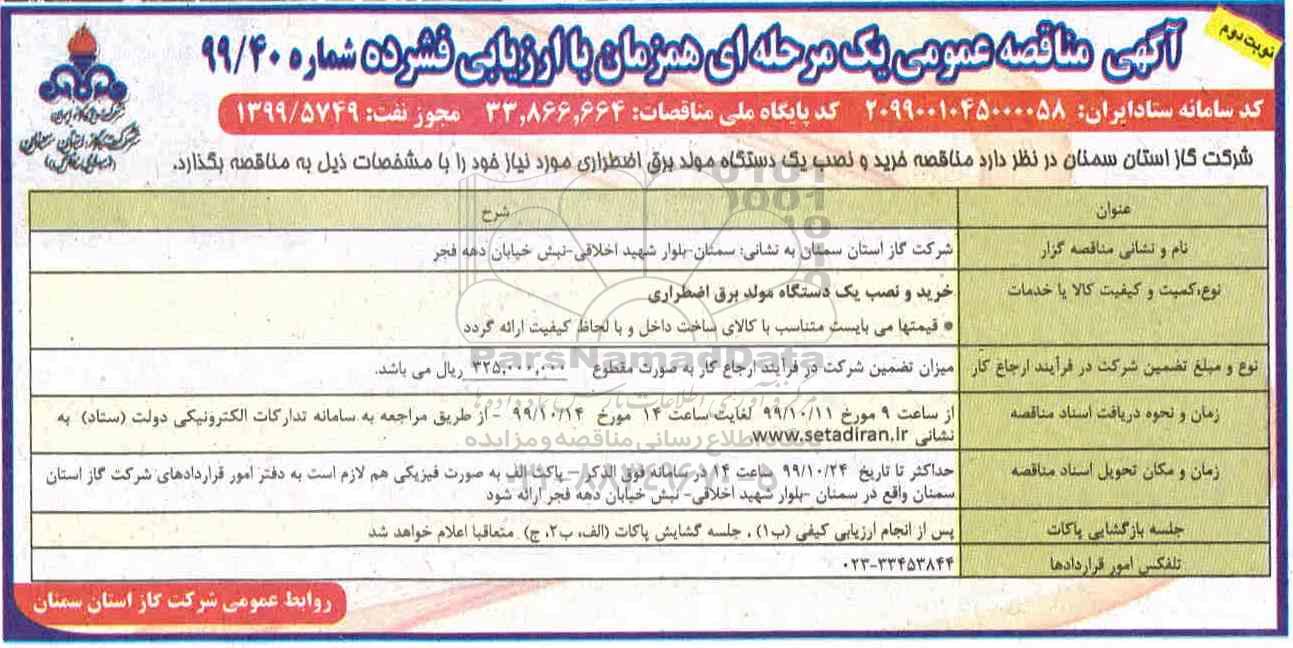 نوبت دوم
آگهی مناقصه عمومی یک مرحله ای همزمان با ارزیابی فشرده شماره ۹۹/۴۰
کد سامانه ستادایران: ۲۰۹۹۰۰۱۰۴۵۰۰۰۰۵۸ کد پایگاه ملی مناقصات: ۳۳,۸۶۶,۶۶۴ مجوز نفت: ۱۳۹۹/۵۷۴۹
شرکت ملی گاز ایران
شرکت گاز استان سمنان
(سهامی خاص)
شرکت گاز استان سمنان در نظر دارد مناقصه خرید و نصب یک دستگاه مولد برق اضطراری مورد نیاز خود را با مشخصات ذیل به مناقصه بگذارد.
عنوان شرح
نام و نشانی مناقصه گزار شرکت گاز استان سمنان به نشانی: سمنان-بلوار شهید اخلاقی-نبش خیابان دهه فجر
نوع،کمیت و کیفیت کالا یا خدمات خرید و نصب یک دستگاه مولد برق اضطراری
● قیمتها می بایست متناسب با کالای ساخت داخل و با لحاظ کیفیت ارائه گردد
نوع و مبلغ تضمین شرکت در فرآیند ارجاع کار میزان تضمین شرکت در فرآیند ارجاع کار به صورت مقطوع ۳۲۵,۰۰۰,۰۰۰ ریال می باشد.
زمان و نحوه دریافت اسناد مناقصه از ساعت ۹ مورخ ۹۹/۱۰/۱۱ لغایت ساعت ۱۴ مورخ ۹۹/۱۰/۱۴ -از طریق مراجعه به سامانه تدارکات الکترونیکی دولت (ستاد) به
نشانی www.setadiran.ir
زمان و مکان تحویل اسناد مناقصه حداکثر تا تاریخ ۹۹/۱۰/۲۴ ساعت ۱۴ در سامانه فوق الذکر – پاکت الف به صورت فیزیکی هم لازم است به دفتر امور قراردادهای شرکت گاز استان
سمنان واقع در سمنان -بلوار شهید اخلاقی- نبش خیابان دهه فجر ارائه شود
جلسه بازگشایی پاکات پس از انجام ارزیابی کیفی (ب۱) ، جلسه گشایش پاکات (الف، ب۲، ج) متعاقبا اعلام خواهد شد
تلفکس امور قراردادها ۰۲۳-۳۳۴۵۳۸۴۴
روابط عمومی شرکت گاز استان سمنان
ParsNamadData
پایگاه اطلاع رسانی مناقصه و مزایده
۰۲۱-۸۸۳۴۹۶۷۰-۵